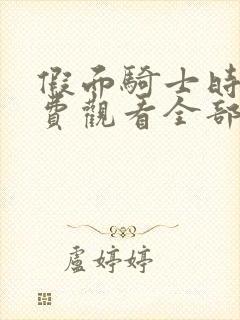 假面騎士時
費觀看全部
盧婷婷